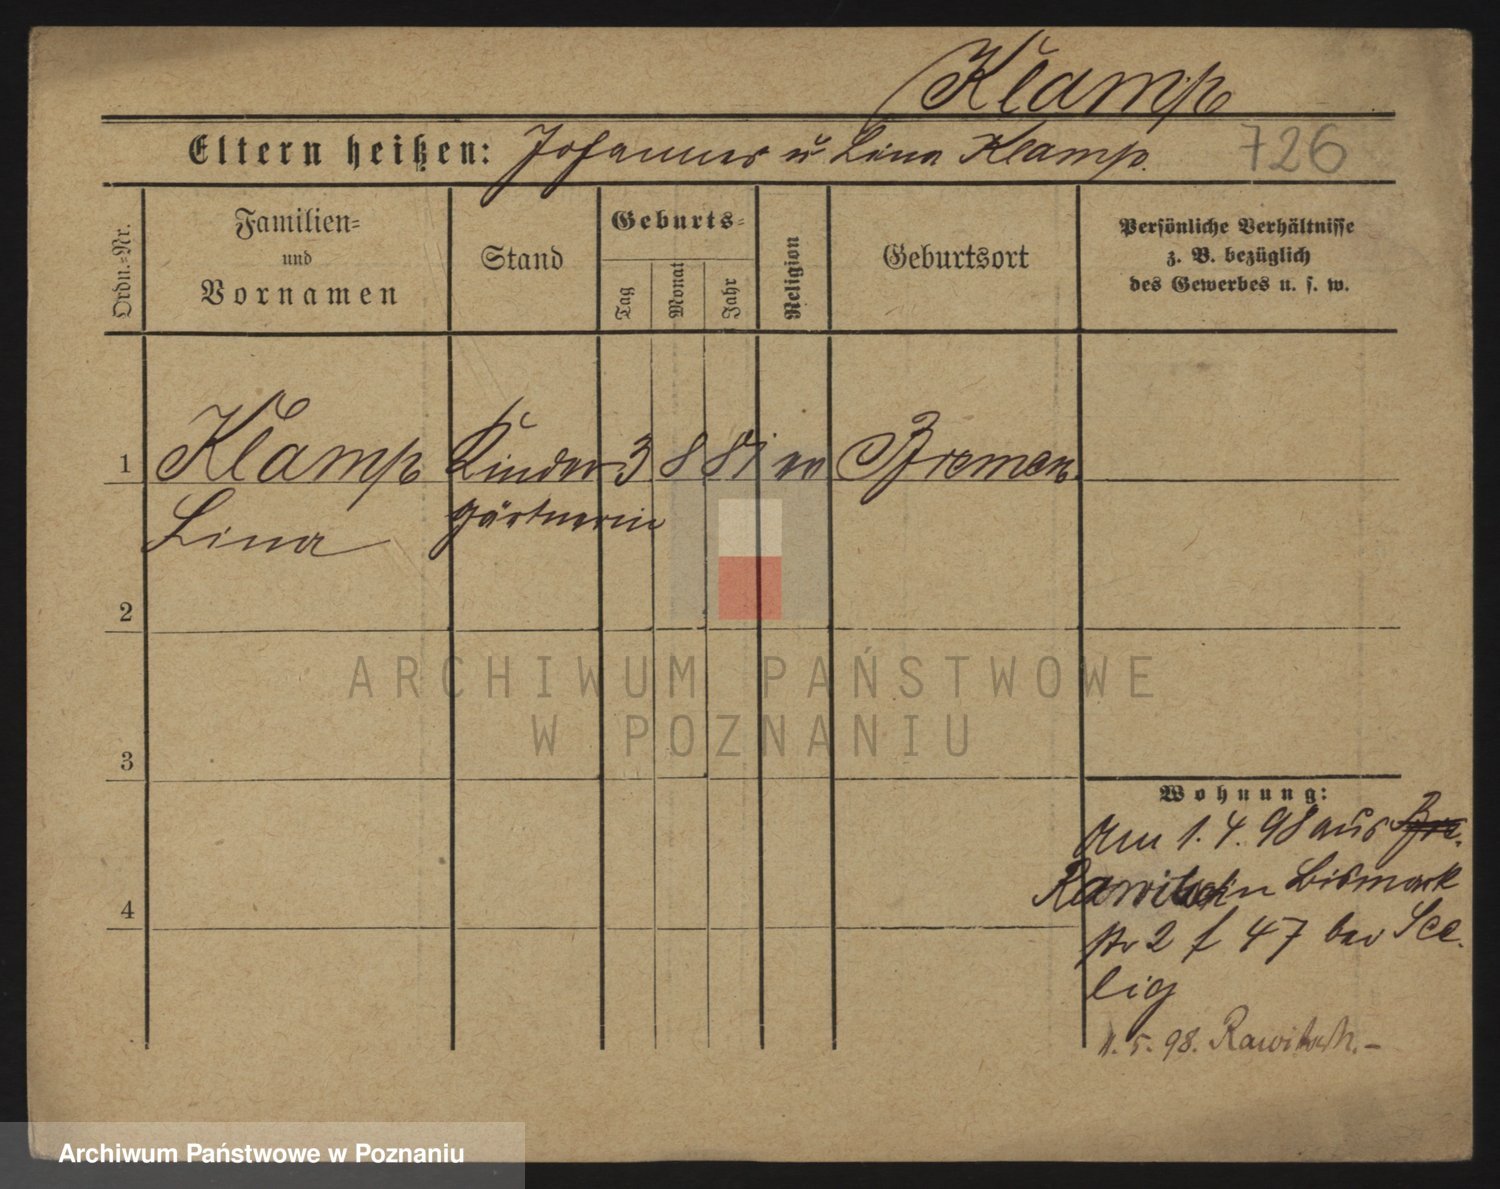 Klamp
Eltern heißen: Johannes u Lina Klamp. 726
Ordn.-Nr.
Familien-
und
Vornamen
Stand
Geburts-
Tag
Monat
Jahr
Religion
Geburtsort
Persönliche Verhältnisse
z. B. bezüglich
des Gewerbes u. s. w.
1 Klamp Kinder 3 8 81 ev Bremen
Lina gärtnerin
2
ARCHIWUM PAŃSTWOWE
W POZNANIU
3
Wohnung:
Am 1.4.98 aus Bre.
Rawitsch in Bismark
str 2 f 47 bei See
lig
4
11.5.98. Rawitsch.-
Archiwum Państwowe w Poznaniu